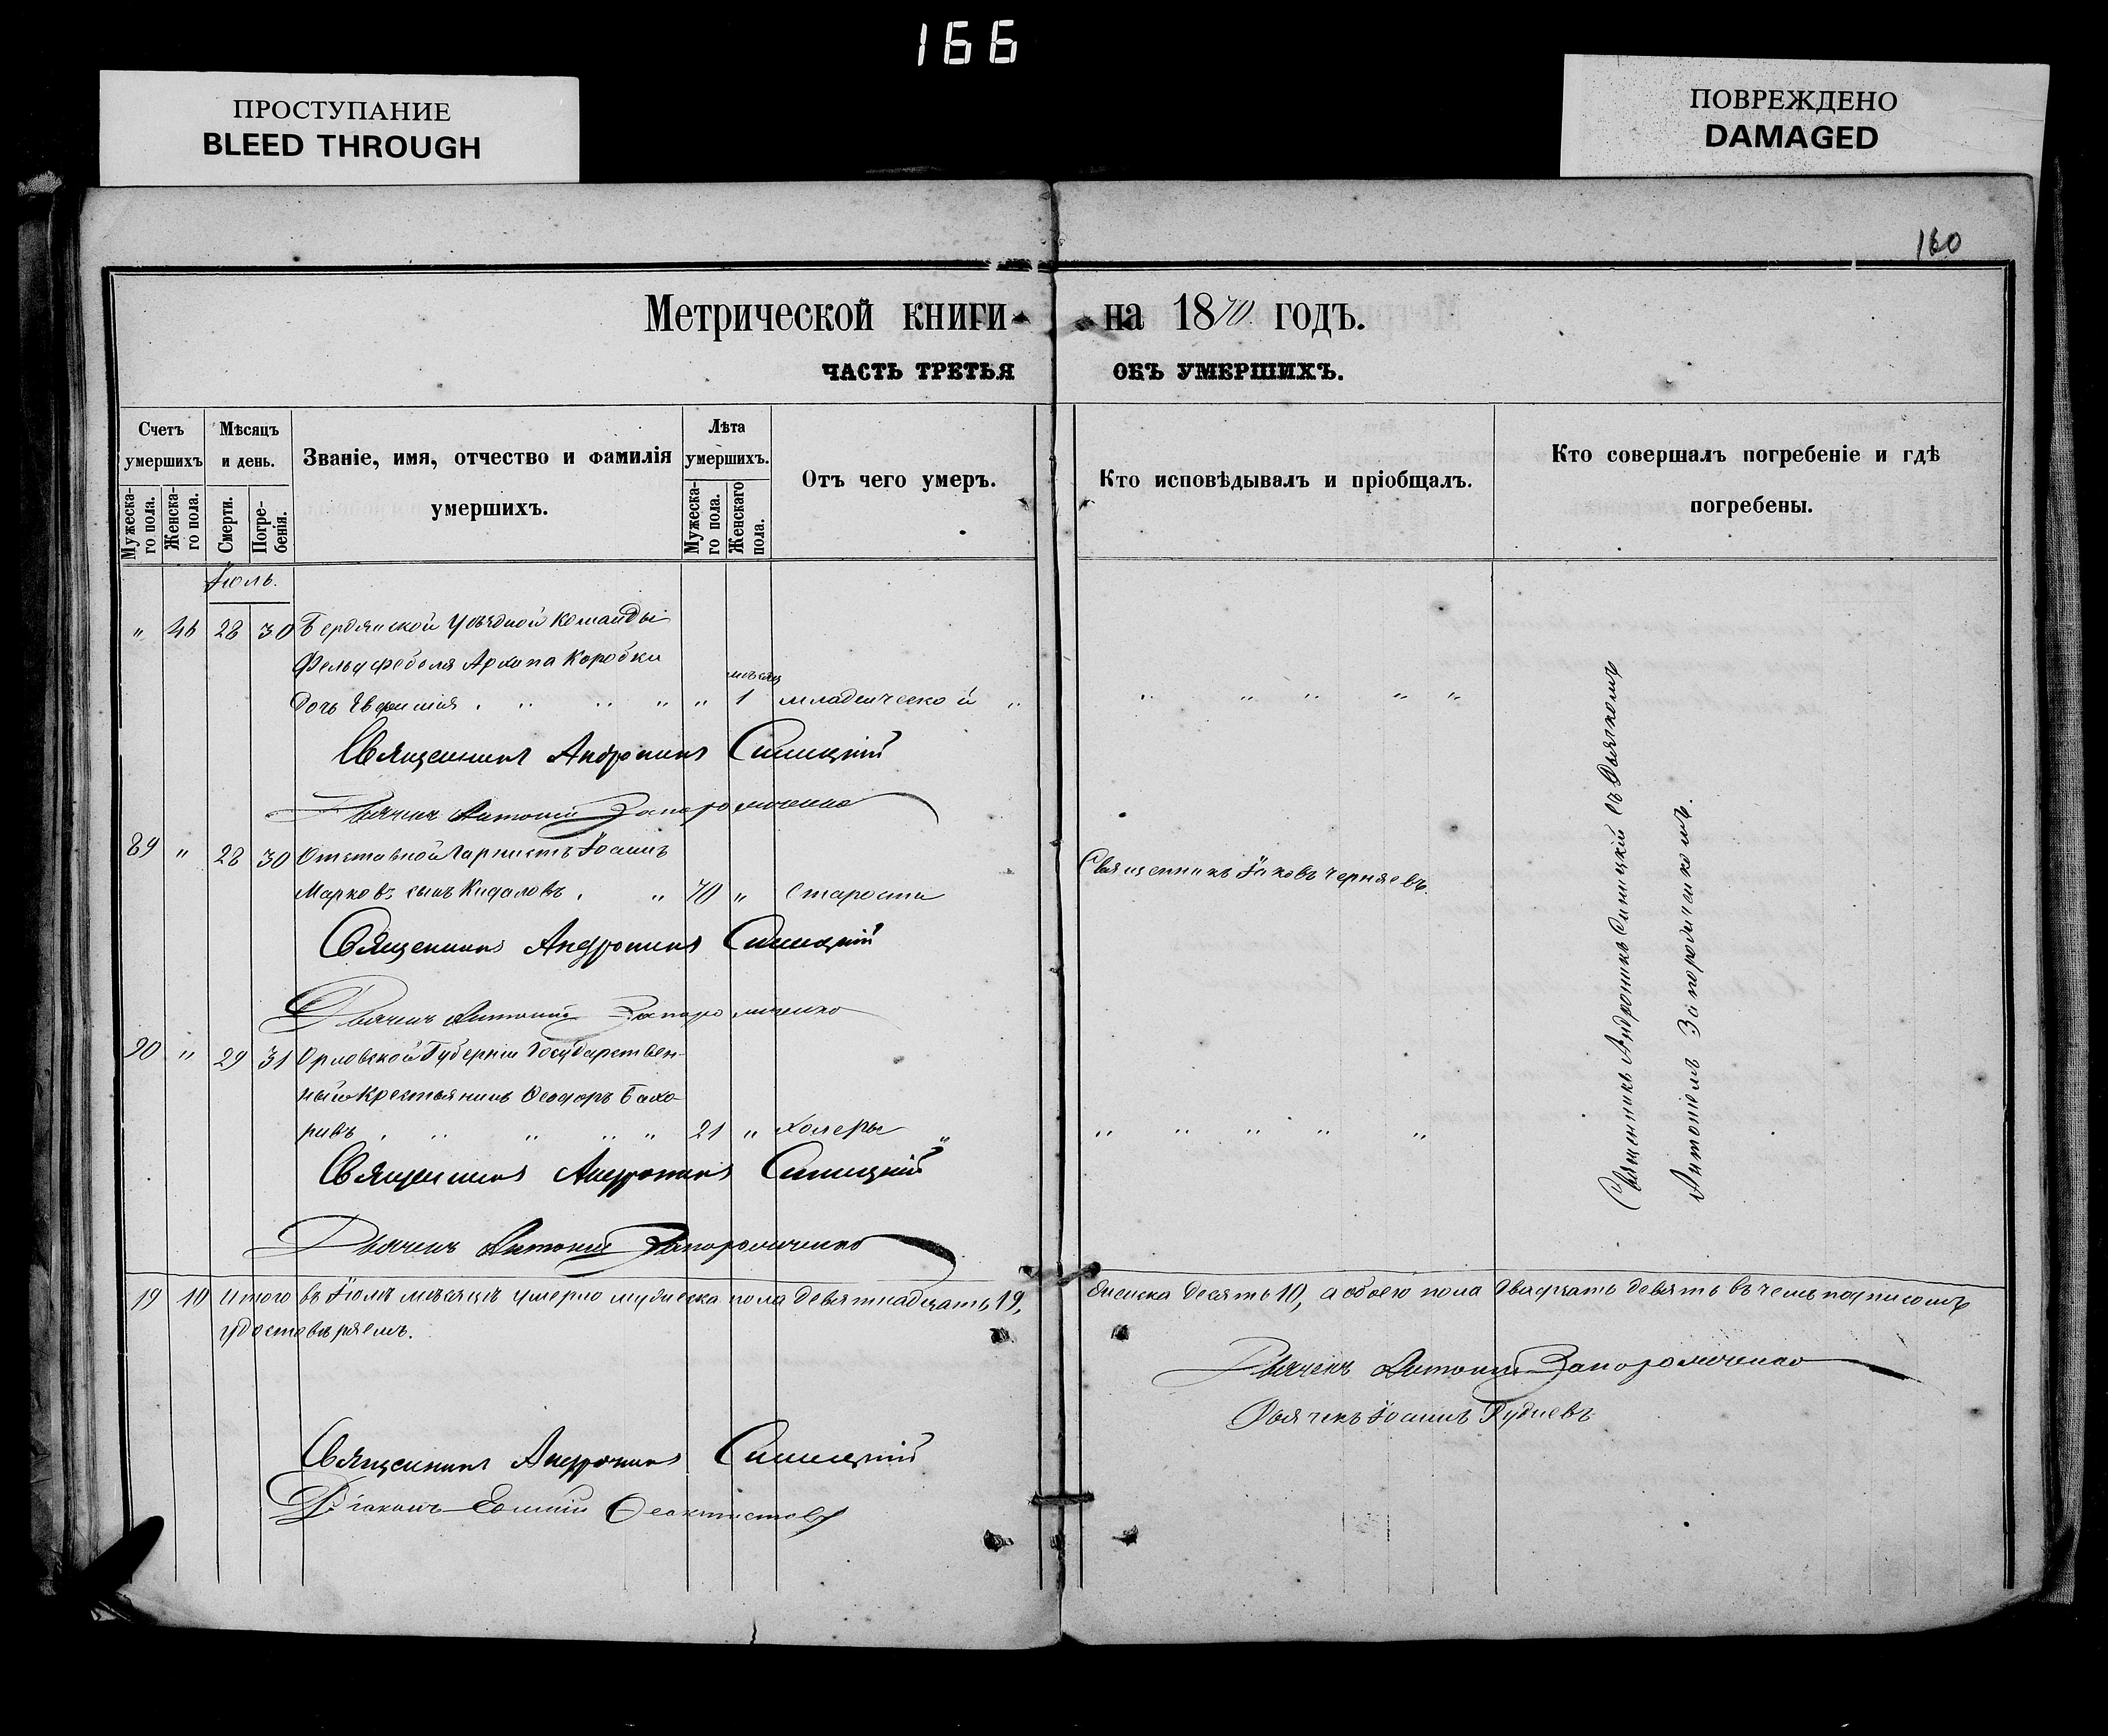 166
ПРОСТУПАНИЕ
BLEED THROUGH
ПОВРЕЖДЕНО
DAMAGED
160
Метрической книги на 1870 годъ.
ЧАСТЬ ТРЕТЬЯ ОБЪ УМЕРШИХЪ.
Счетъ умершихъ
Мужеска-го пола.
Женска-го пола.
Мѣсяцъ и день.
Смерти.
Погре-бенія.
Званіе, имя, отчество и фамилія умершихъ.
Лѣта умершихъ.
Мужеска-го пола.
Женскаго пола.
Отъ чего умеръ.
Кто исповѣдывалъ и пріобщалъ.
Кто совершалъ погребеніе и гдѣ погребены.
Іюль.
" 28 30 Бердянской Уѣздной Команды
Фельдфебеля Архипа Коробки
мѣсяц
дочь Евфимія " " 1 младенческой "
Священникъ Андроникъ Синицкій
Дьячекъ Антоній Запорожченко
89 " 28 30 Отставной Іоаннъ
Марковъ сынъ " 70 " Старости
Священникъ Іаковъ Черняевъ
Священникъ Андроникъ Синицкій
Дьячекъ Антоній Запорожченко
90 " 29 31 Орловской Губерніи Государствен-
ный Крестьянинъ Ѳеодоръ Бахо-
ривъ " 21 " холеры "
Священникъ Андроникъ Синицкій
Дьячекъ Антоній Запорожченко
Священникъ Андроникъ Синицкій съ Дьячкомъ
Антоніемъ Запорожченкомъ.
19 10 Итого въ Іюлѣ мѣсяцѣ умерло мужеска пола девятнадцать 19, женска десять 10, а обоего пола двадцать девять въ чемъ подписомъ
удостовѣряемъ.
Дьячекъ Антоній Запорожченко
Дьячекъ Іоаннъ Рудневъ
Священникъ Андроникъ Синицкій
Діаконъ Ѳеоктистовъ